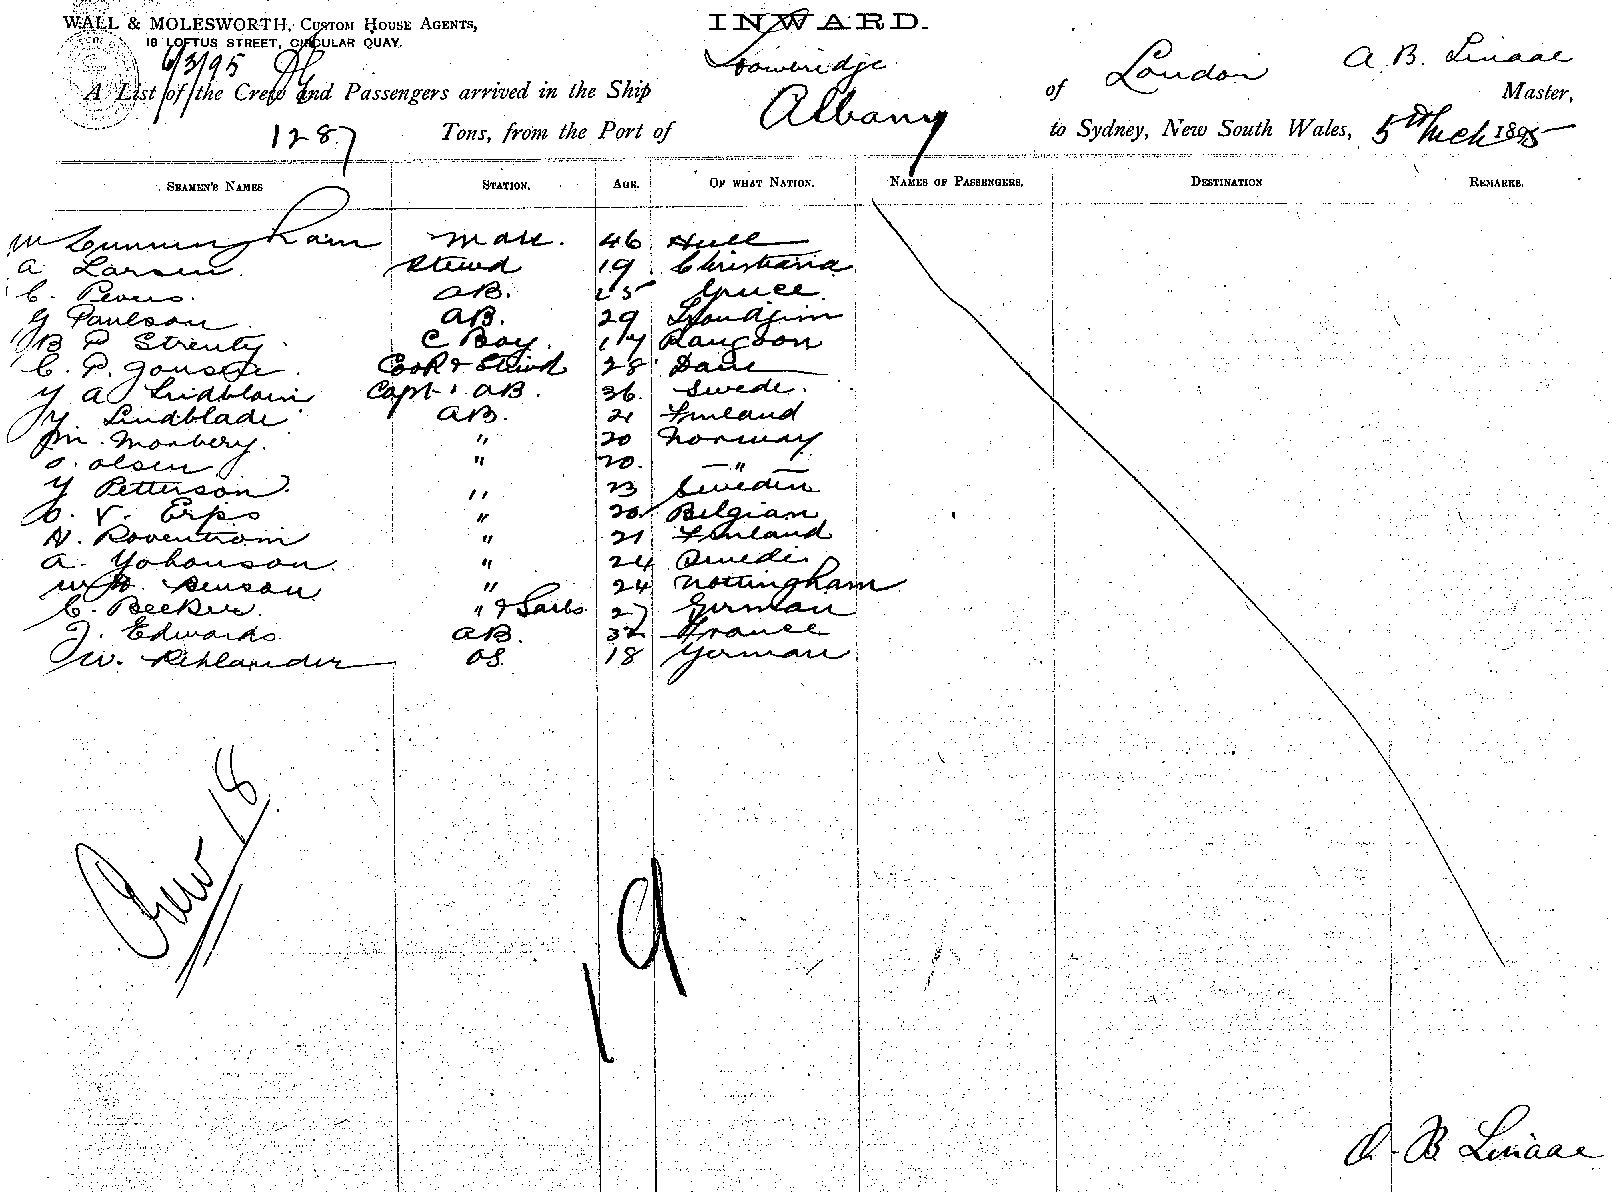 WALL & MOLESWORTH, CUSTOM HOUSE AGENTS,
18 LOFTUS STREET, CIRCULAR QUAY.
INWARD.
6/3/95
A List of the Crew and Passengers arrived in the Ship Trowbridge of London A. B. Linaae Master,
1287 Tons, from the Port of Albany to Sydney, New South Wales, 5th Mch 1895
SEAMEN'S NAMES STATION. AGE. OF WHAT NATION. NAMES OF PASSENGERS. DESTINATION REMARKS.
W Cunningham Mate. 46 Hull
A Larsen Stewd 19 Christiania
C. AB. 25 Greece
G Paulson AB. 29 Trondjim
B P Strenty C Boy. 17 Rangoon
C. P. Cook & Stewd 28 Dane
Y A Lindblom AB. 36 Swede.
Y. Lindblade AB. 21 Finland
M. Monbery. " 20 Norway
O. Olsen " 20 "
Y Petterson " 23 Sweden
O. V. Erps " 20 Belgian
N. " 21 Finland
A. Yohanson " 24 Swede
W Benson " 24 Nottingham
C. Becker " & Sails 27 German
J. Edwards AB. 32 France
W. Rehlander OS. 18 German
Crew 18
19
A. B Linaae